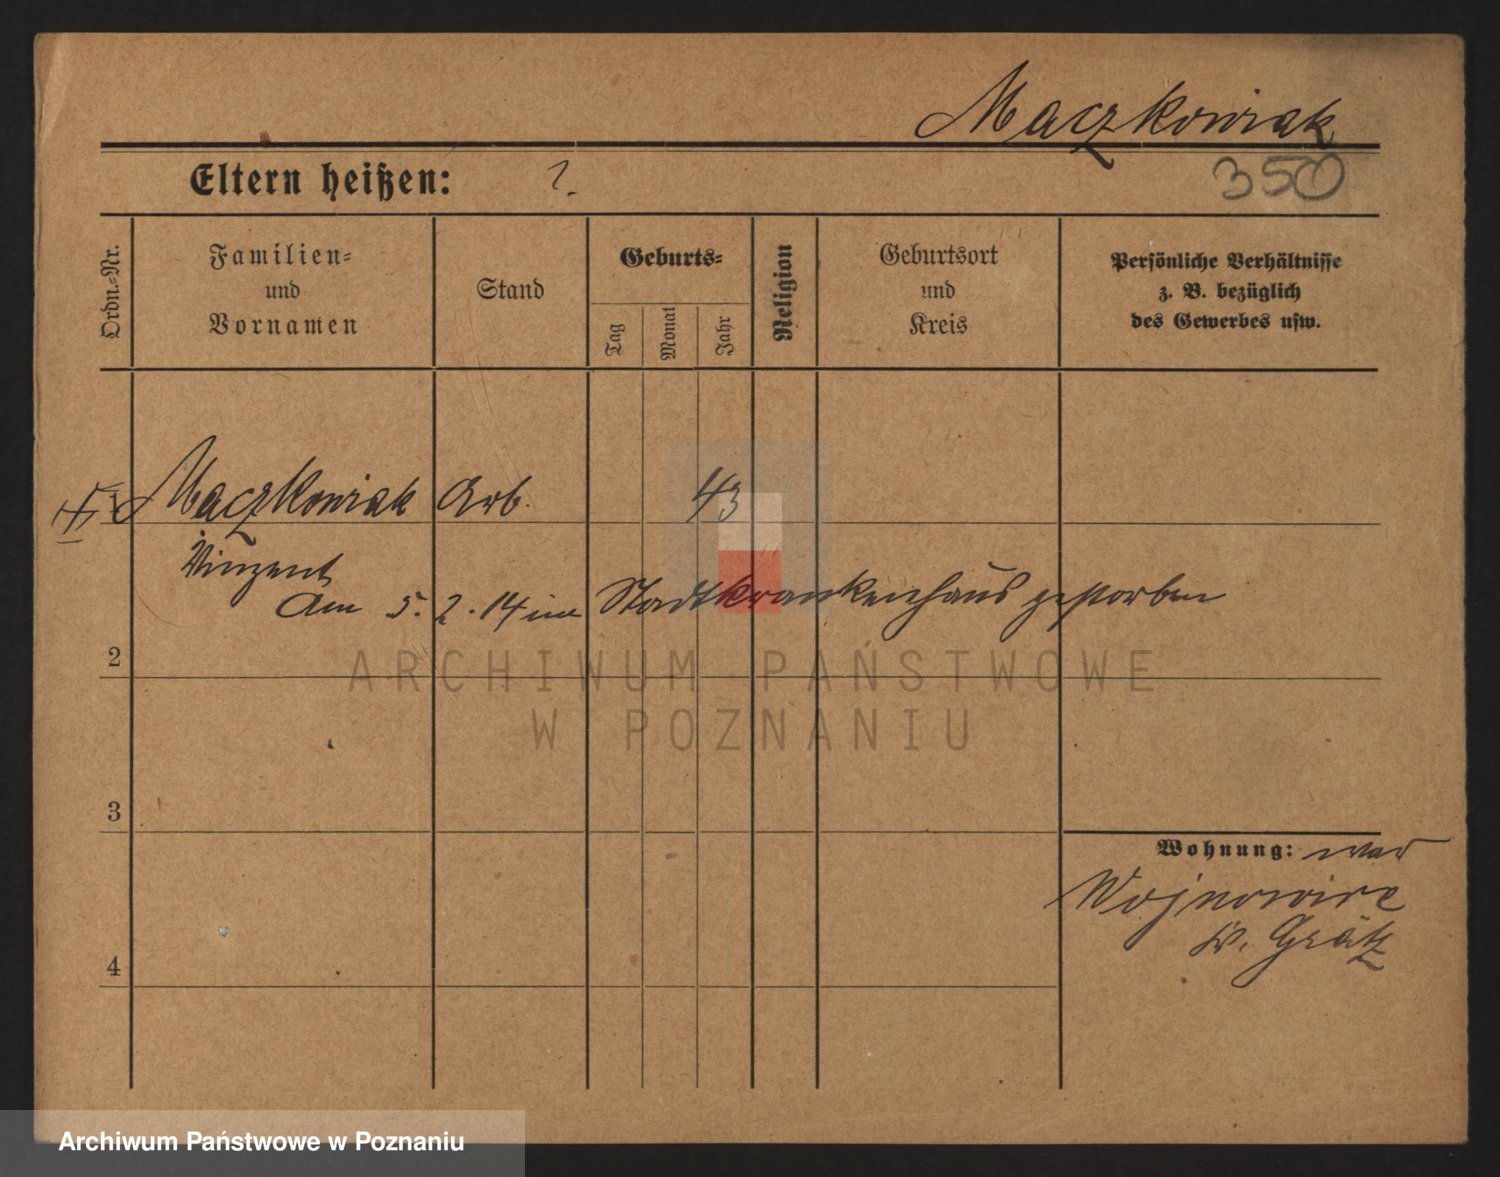 Maczkowiak
Eltern heißen: ?.
350
Ordn.-Nr.
Familien-
und
Vornamen
Stand
Geburts-
Tag
Monat
Jahr
Religion
Geburtsort
und
Kreis
Persönliche Verhältnisse
z. B. bezüglich
des Gewerbes usw.
1 Maczkowiak Arb. 43
Vinzent
Am 5. 2. 14 im Stadtkrankenhaus gestorben
2
ARCHIWUM PAŃSTWOWE
W POZNANIU
3
Wohnung: war
4
Grätz
Archiwum Państwowe w Poznaniu